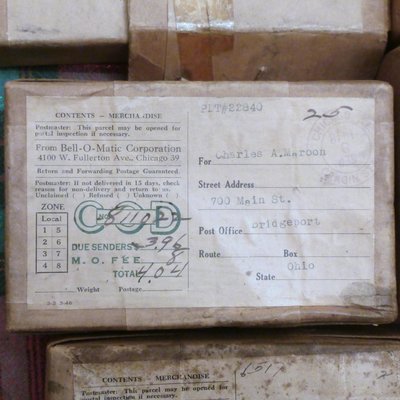 PLT#22840
25
CONTENTS - MERCHANDISE
Postmaster: This parcel may be opened for
postal inspection if necessary.
From Bell-O-Matic Corporation
4100 W. Fullerton Ave., Chicago 39
Return and Forwarding Postage Guaranteed.
Postmaster: If not delivered in 15 days, check
reason for non-delivery and return to us.
Unclaimed ( ) Refused ( ) Unknown ( )
ZONE
Local
1 5
2 6
3 7
4 8
COD
NO.
DUE SENDERS 3.96
M. O. FEE 8
TOTAL 4.04
Weight Postage
For Charles A. Maroon
Street Address
700 Main St.
Post Office Bridgeport
Route Box
State Ohio
CONTENTS - MERCHANDISE
Postmaster: This parcel may be opened for
postal inspection if necessary.